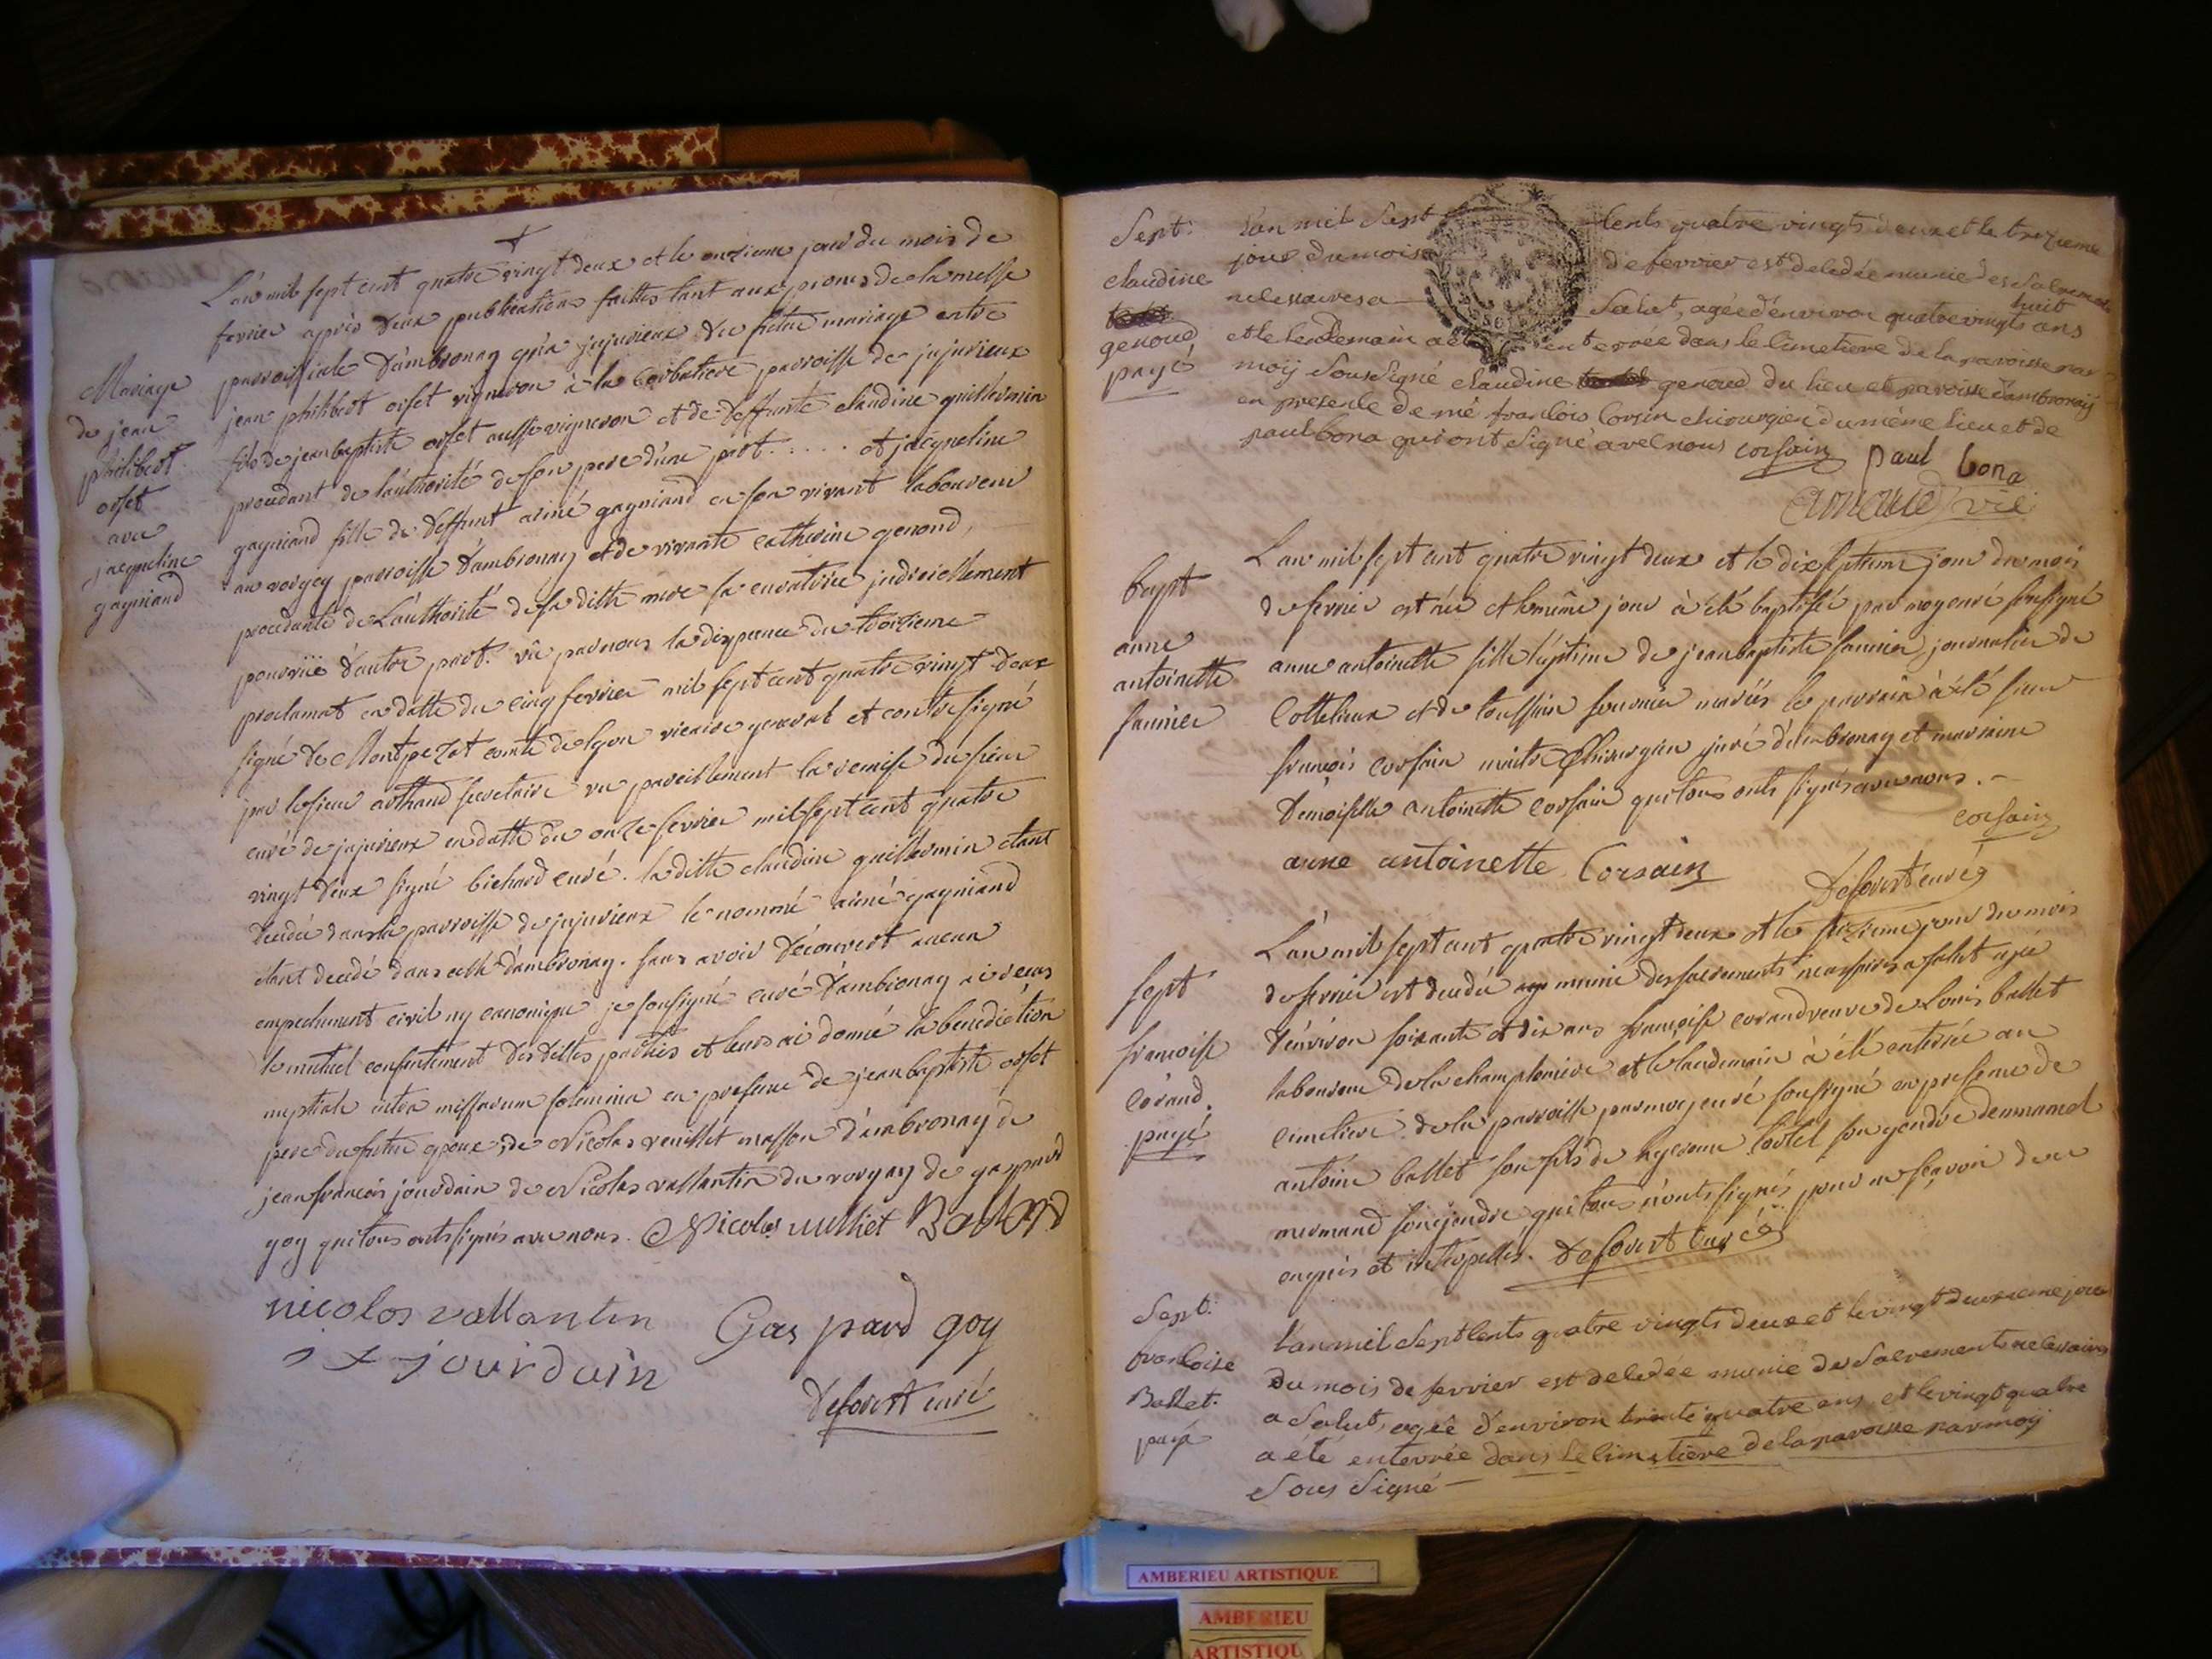 +
L'an mil sept cent quatre vingt deux et le onzieme jour du mois de
fevrier après deux publications faittes tant aux prones de la messe
parroissiale d'ambronay qu'a jujurieux du futur mariage entre
jean philibert orset vigneron à la Corbatiere parroisse de jujurieux
fils de jean baptiste orset aussi vigneron et de deffunte claudine guillermin
procedant de l'authorité de son pere d'une part. . . . . et jacqueline
gagniand fille de deffunt aimé gagniand en son vivant laboureur
au vorgey parroisse d'ambronay et de vivante catherine genoud,
procedante de L'authorité de sa ditte mere sa curatrice judiciellement
pourvüe d'autre part. vû par nous la dispence du troizieme
proclamat en datte du cinq fevrier mil sept cent quatre vingt deux
signé de Montpezat comte de lyon vicaire general et contresigné
par le sieur arthaud secretaire vu pareillement la remise du sieur
curé de jujurieux en datte du onze fevrier mil sept cent quatre
vingt deux signé bichard curé. la ditte claudine guillermin etant
decedée dans la parroisse de jujurieux le nommé aimé gagniand
etant decedé dans celle d'ambronay. sans avoir découvert aucun
empechement civil ny canonique je soussigné curé d'ambronay ai reçu
le mutuel consentement des dittes parties et leurs ai donné la benediction
nuptiale intra missarum solemnia en presence de jean baptiste orset
pere du futur epoux, de Nicolas vuilliet masson d'ambronay de
jean françois jourdain de Nicolas vallantin du vorgay de gaspard
goy qui tous onts signés avec nous. Nicolas vulliet
nicolas vallantin Gas pard goy
j f jourdain
Deforest curé
Mariage
de jean
philibert
orset
avec
jacqueline
gagniand
Sept:
claudine
genoud
payé
Lan mil Sept Cents quatre vingts deux et le trezieme
jour du mois de fevrier est decedée munie des Sacrements
necessaires a Salut, agée d'environ quatre vingts huit ans
et le lendemain a été enterrée dans le Cimetiere de la paroisse par
moÿ Sous Signé claudine genoud du lieu et paroisse d'ambronaÿ
en presence de mé francois Corsin chirurgien du même lieu et de
paul bona qui ont signé avec nous corsain paul bona
vic
bapt
anne
antoinette
fannier
L'an mil sept cent quatre vingt deux et le dix septieme jour du mois
de fevrier est née et le même jour à été baptisée par moy curé soussigné
anne antoinette fille légitime de jean baptiste fannier journalier de
Cottelieux et de fournier mariés le parrain à été sieur
françois corsain maitre Chirurgien juré d'ambronay et marraine
demoiselle antoinette corsain qui tous onts signés avec nous.
corsain
anne antoinette Corsain
Deforest curé
sept
francoise
Corand.
payé
L'an mil sept cent quatre vingt deux et le seizieme jour du mois
de fevrier est decedée munie des sacrements necessaires a salut agée
d'environ soixante et dix ans françoise corand veuve de Louis ballet
laboureur de la championiere et le landemain à été enterrée au
cimetiere de la parroisse par moy curé soussigné en presence de
antoine ballet son fils de hyerome son gendre demmanuel
mermand son gendre qui tous n'onts signés pour ne sçavoir de ce
enquis et interpellés. Deforest Curé
Sept:
francoise
Ballet.
payé
L'an mil Sept Cents quatre vingts deux et le vingt deuxieme jour
du mois de fevrier est decedée munie des Sacrements necessaires
a Salut, agée d'environ trente quatre ans, et le vingt quatre
a été enterrée dans le Cimetière de la paroisse par moÿ
Sous Signé
AMBERIEU ARTISTIQUE
AMBERIEU
ARTISTIQU